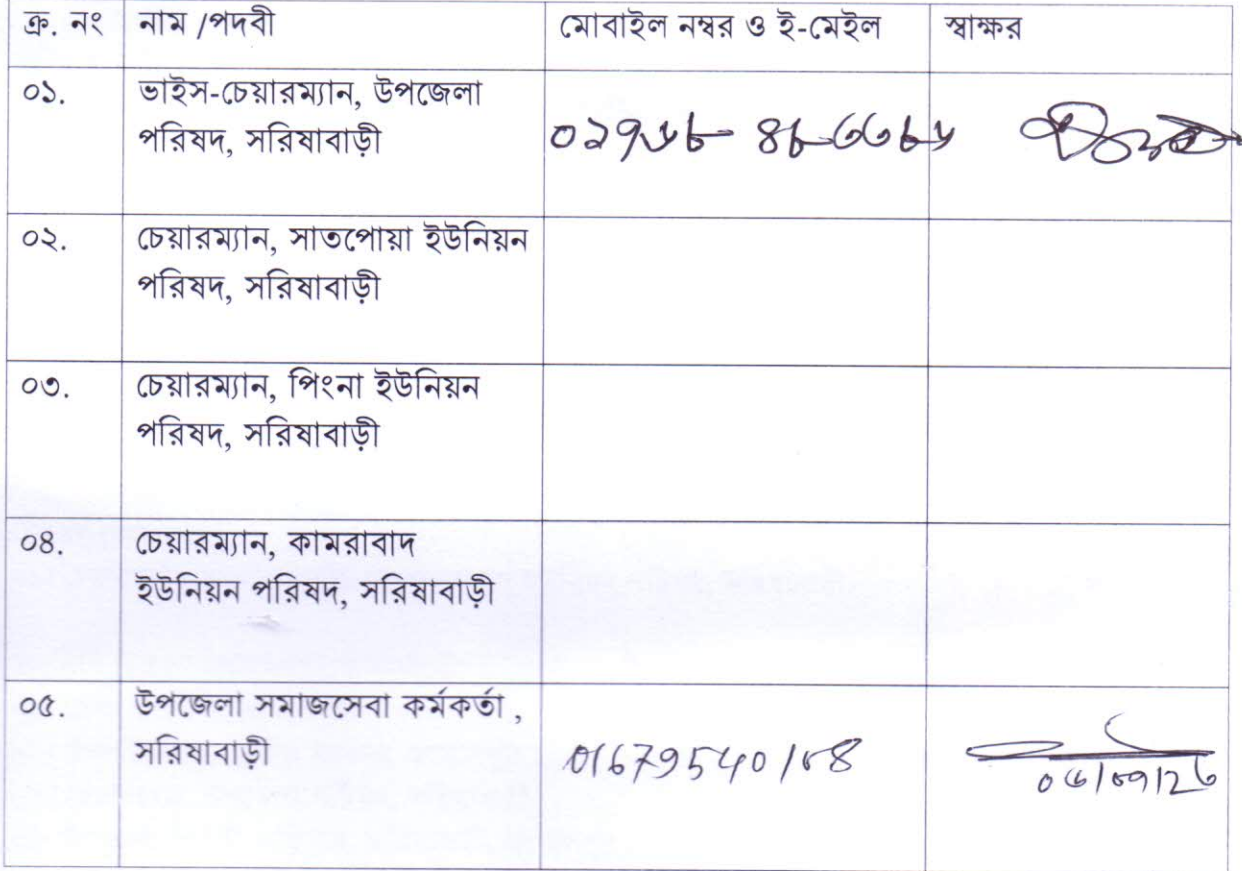 ক্র. নং নাম /পদবী মোবাইল নম্বর ও ই-মেইল স্বাক্ষর
০১. ভাইস-চেয়ারম্যান, উপজেলা
পরিষদ, সরিষাবাড়ী
০২. চেয়ারম্যান, সাতপোয়া ইউনিয়ন
পরিষদ, সরিষাবাড়ী
০৩. চেয়ারম্যান, পিংনা ইউনিয়ন
পরিষদ, সরিষাবাড়ী
০৪. চেয়ারম্যান, কামরাবাদ
ইউনিয়ন পরিষদ, সরিষাবাড়ী
০৫. উপজেলা সমাজসেবা কর্মকর্তা ,
সরিষাবাড়ী